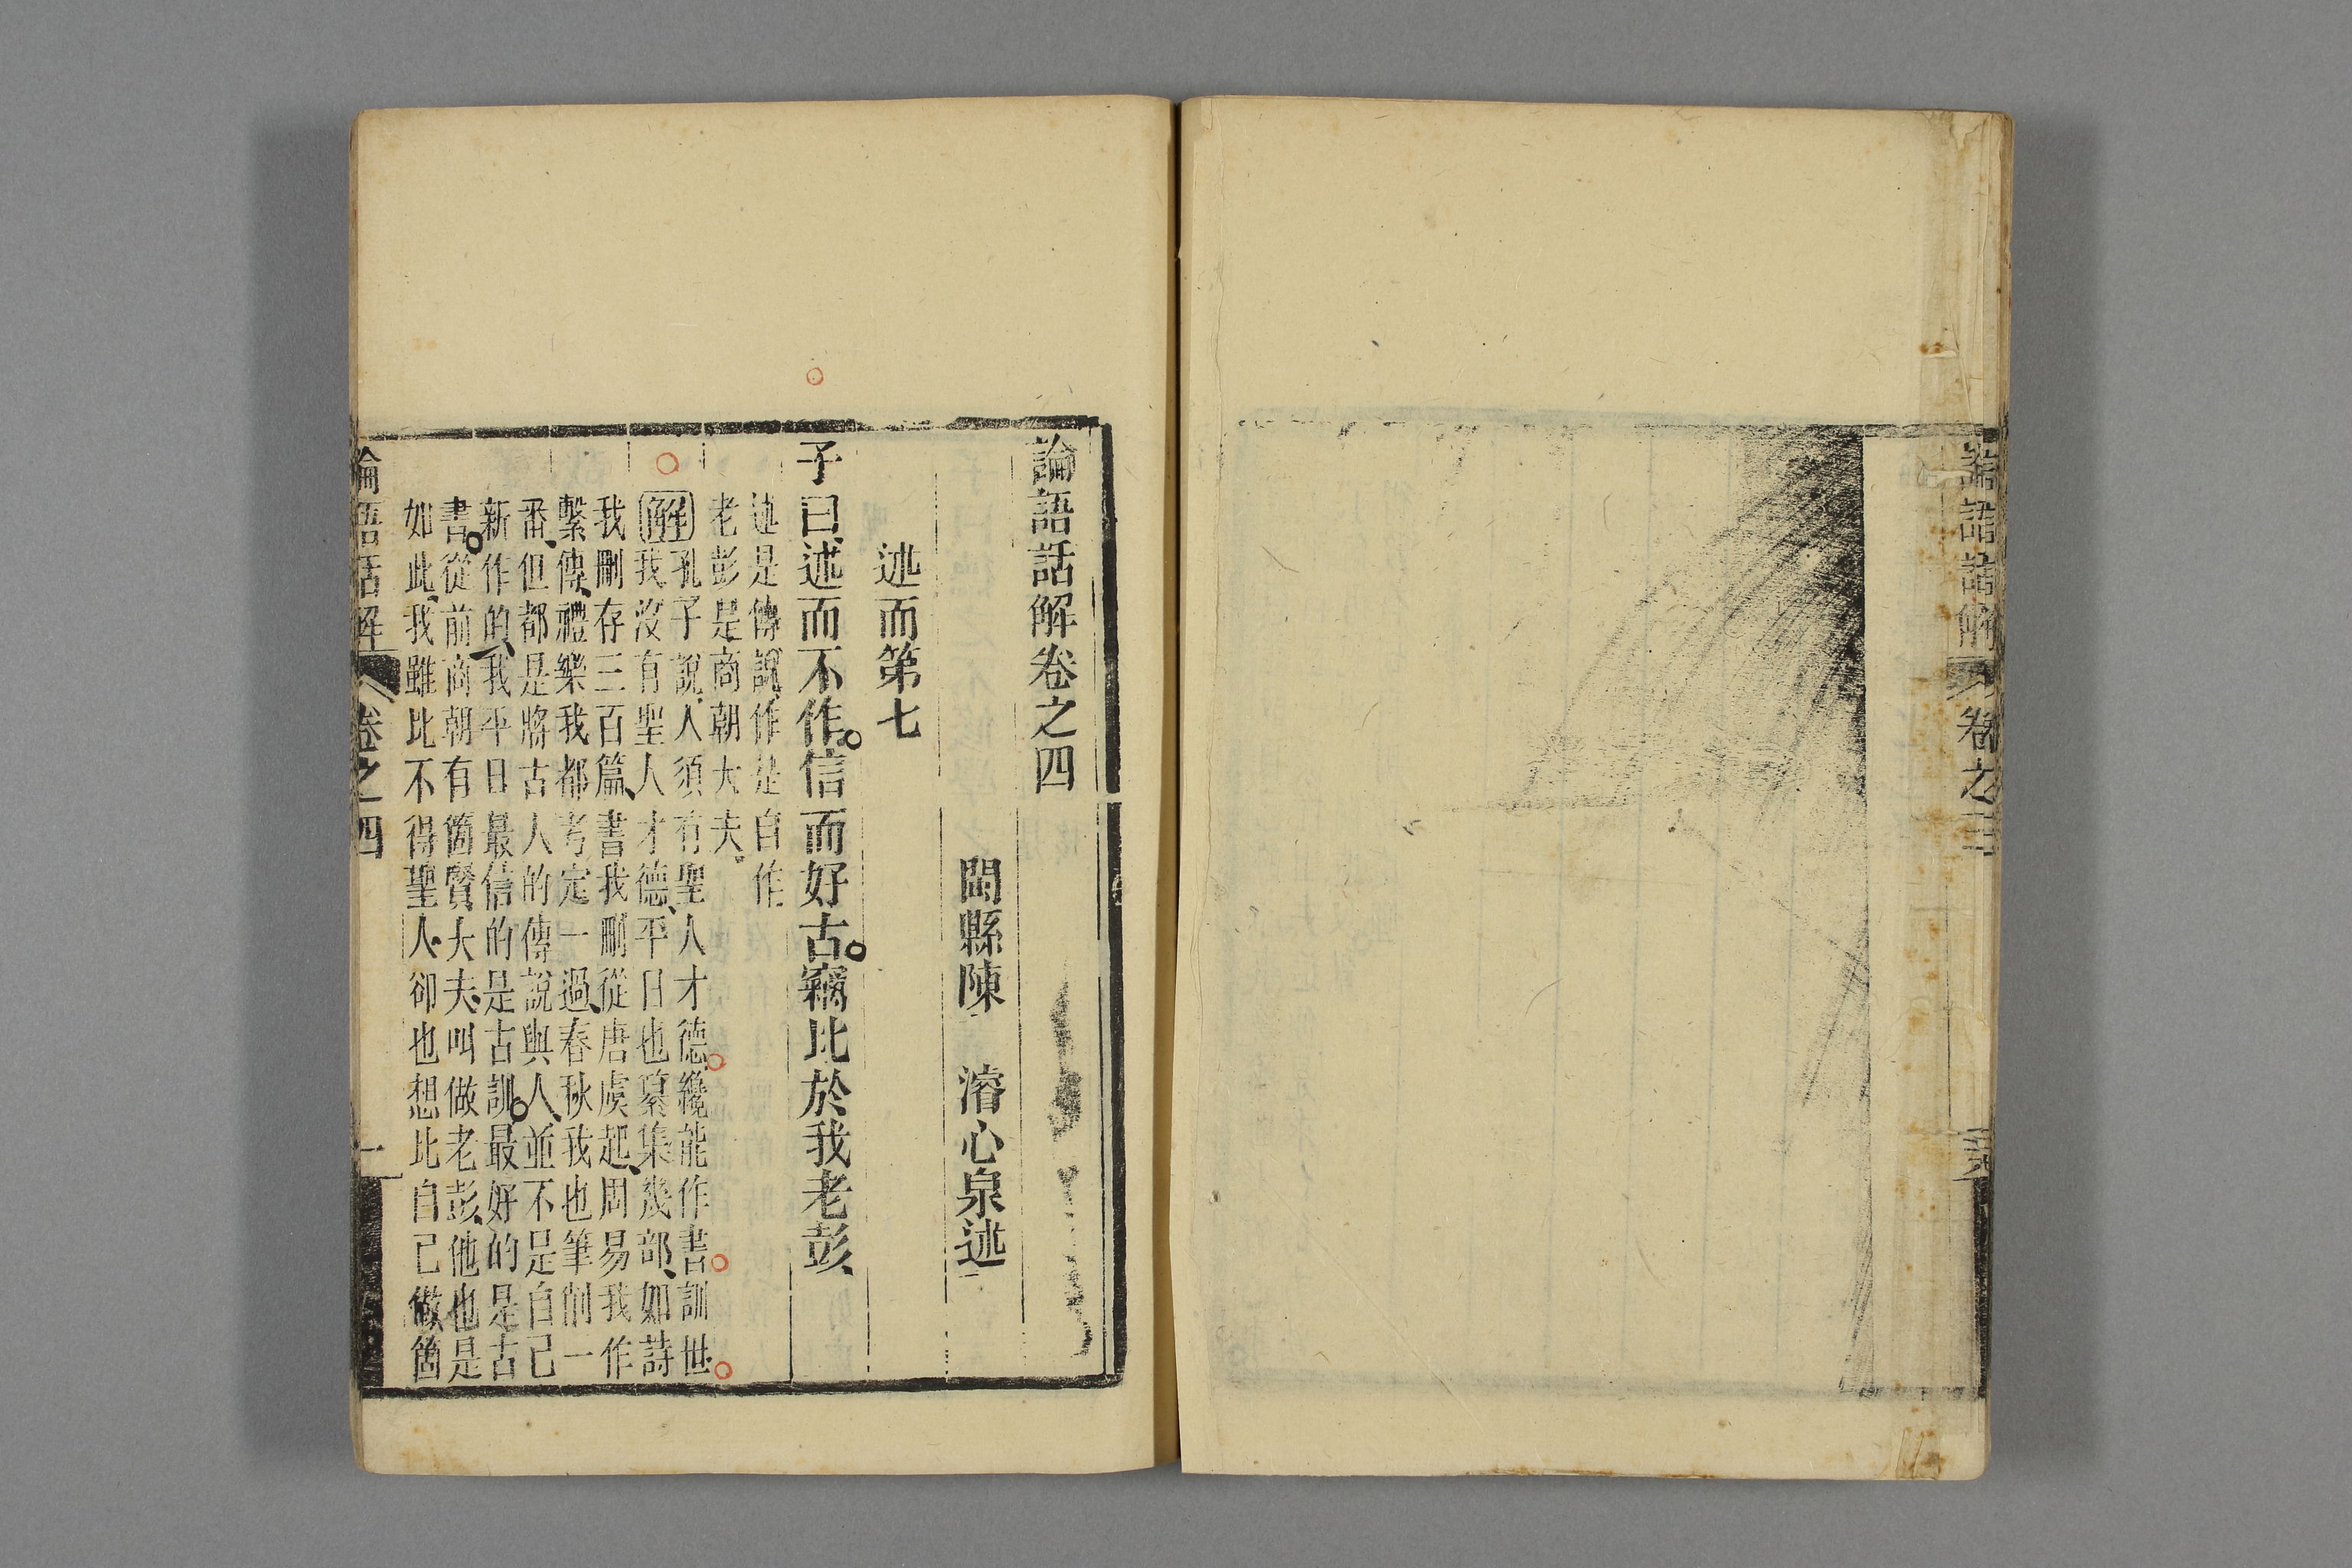 論語話解 卷之三
論語話解卷之四
閩縣陳 濬心泉述
述而第七
子曰、述而不作。信而好古。竊比於我老彭、
述是傳說、作是自作
老彭是商朝大夫。
解 孔子說、人須有聖人才德、纔能作書訓世、
我沒有聖人才德、平日也纂集幾部、如詩
我刪存三百篇、書我刪從唐虞起、周易我作
繫傳、禮樂我都考定一過、春秋我也筆削一
番、但都是將古人的傳說與人、並不是自己
新作的、我平日最信的是古訓。最好的是古
書。從前商朝有箇賢大夫、叫做老彭、他也是
如此、我雖比不得聖人、卻也想比自己做箇
論語話解 卷之四 一